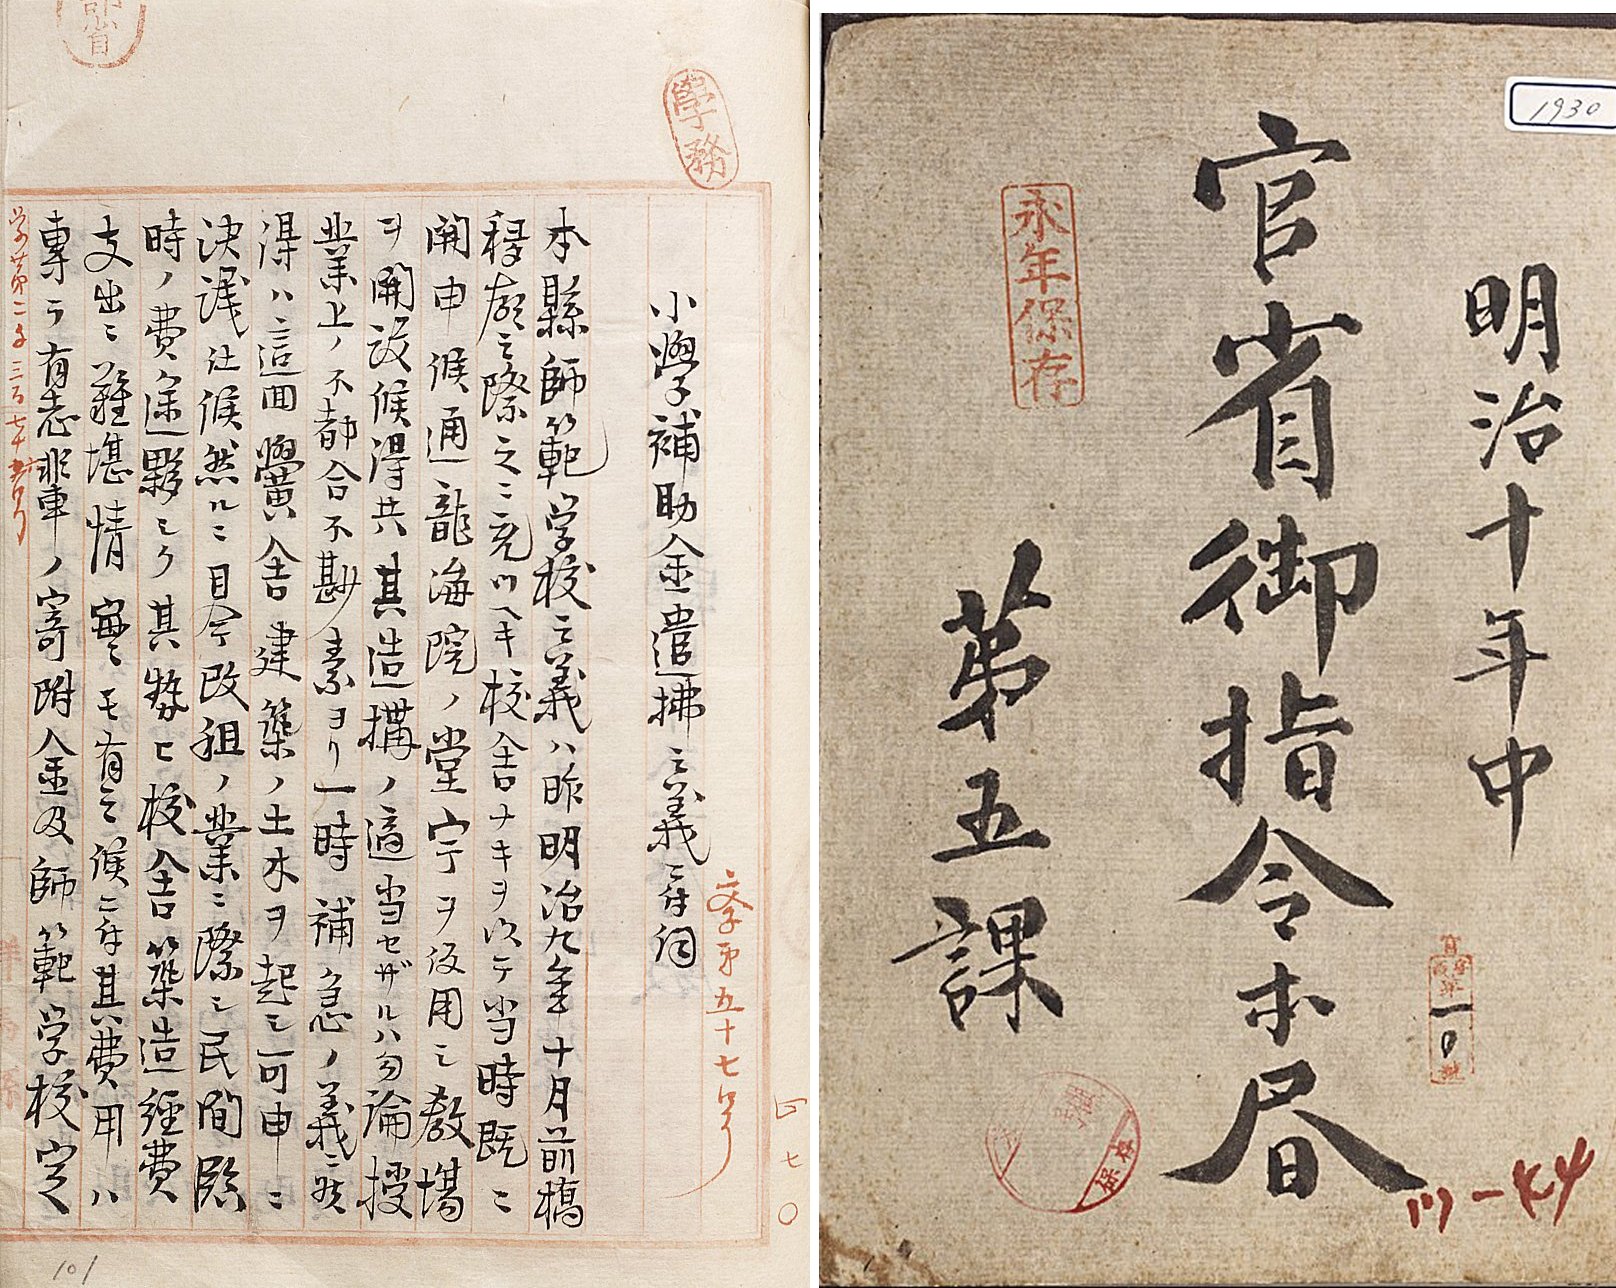 學務
小學補助金遣拂之義ニ付伺
文学第五十七号
四七〇
本縣師範学校之義ハ昨明治九年十月前橋
移庁之際之ニ充ツヘキ校舎ナキヲ以テ当時既ニ
開申候通龍海院ノ堂宇ヲ仮用シ教場
ヲ開設候得共其造搆ノ適当セザルハ勿論授
業上ノ不都合不尠素ヨリ一時補急ノ義ニ候
得ハ這回黌舎建築ノ土木ヲ起シ可申ニ
決議仕候然ルニ目今改租ノ業ニ際シ民間臨
時ノ費途夥シク其勢ヒ校舎築造経費
支出ニ難堪情實モ有之候ニ付其費用ハ
専ラ有志輩ノ寄附金及師範学校定
101
1930
明治十年中
官省御指令本昏
永年保存
第五課
一〇